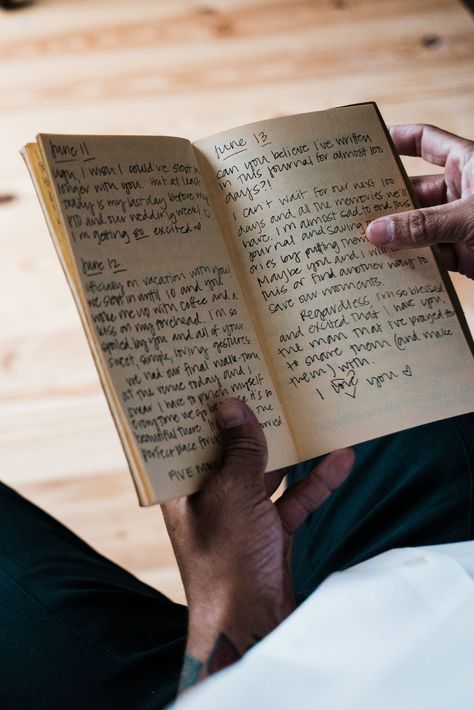 June 11
ugh, I wish I could've slept in
longer with you. But at least
today is my last day before my
PTO and our wedding week!
I'm getting so excited ♡
June 12
officially on vacation with you!
we slept in until 10 and you
woke me up with coffee and a
kiss on my forehead. I'm so
spoiled by you and all of your
sweet, simple, loving gestures.
we had our final walk thru
at the venue today and I
swear I have to pinch myself
everytime we go b it's so
beautiful there. the
perfect place for
FIVE MO
June 13
can you believe I've written
in this journal for almost 100
days?!
I can't wait for our next 100
days and all the memories we'll
have. I'm almost sad to end this
journal and saving
ories by putting them
Maybe you and I will
this or find another way to
save our moments.
Regardless, I'm so blessed
and excited that I have you,
the man that I've prayed for
to share them (and make
them) with.
I love you ♡